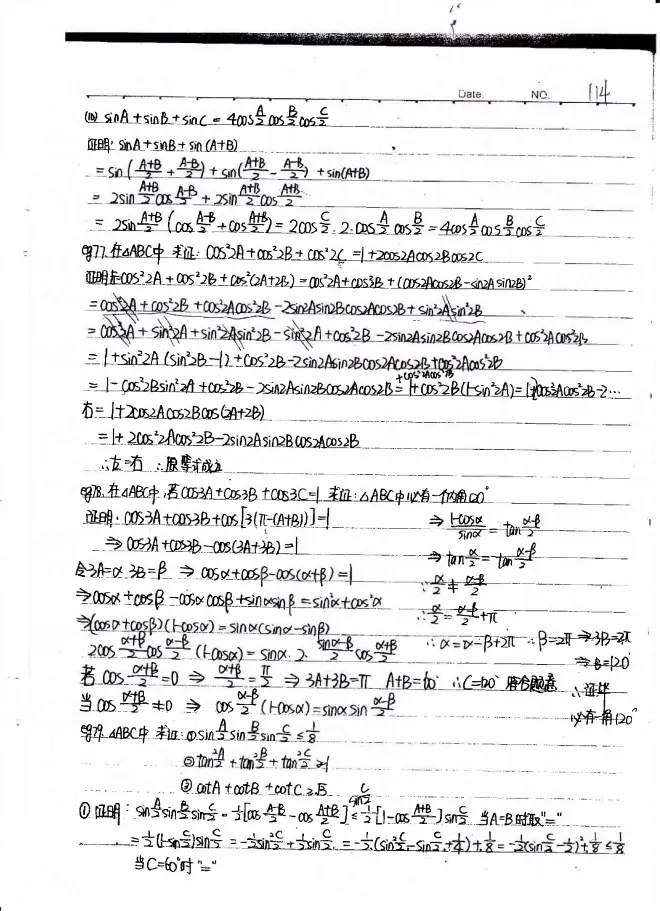 Date. NO. 114
(10) sinA + sinB + sinC = 4cos A/2 cos B/2 cos C/2
证明: sinA + sinB + sin(A+B)
= sin(A+B/2 + A-B/2) + sin(A+B/2 - A-B/2) + sin(A+B)
= 2sin A+B/2 cos A-B/2 + 2sin A+B/2 cos A+B/2
= 2sin A+B/2 (cos A-B/2 + cos A+B/2) = 2cos C/2 · 2 · cos A/2 cos B/2 = 4cos A/2 cos B/2 cos C/2
eg77. 在△ABC中 求证: cos²2A + cos²2B + cos²2C = 1+2cos2Acos2Bcos2C
证明: 左=cos²2A + cos²2B + cos²(2A+2B) = cos²2A + cos²2B + (cos2Acos2B - sin2Asin2B)²
= cos²2A + cos²2B + cos²2Acos²2B - 2sin2Asin2Bcos2Acos2B + sin²2Asin²2B
= cos²2A + sin²2A + sin²2Asin²2B - sin²2A + cos²2B - 2sin2Asin2Bcos2Acos2B + cos²2Acos²2B
= 1+sin²2A(sin²2B-1) + cos²2B - 2sin2Asin2Bcos2Acos2B + cos²2Acos²2B
= 1-cos²2Bsin²2A + cos²2B - 2sin2Asin2Bcos2Acos2B +cos²2Acos²2B = 1+cos²2B(1-sin²2A) = 1+2cos²2Acos²2B-2…
右 = 1+2cos2Acos2Bcos(2A+2B)
= 1+2cos²2Acos²2B - 2sin2Asin2Bcos2Acos2B
∴左=右 ∴原等式成立
eg78. 在△ABC中, 若cos3A + cos3B + cos3C = 1 求证: △ABC中必有一个内角120°
证明: cos3A + cos3B + cos[3(π-(A+B))] = 1
⇒ cos3A + cos3B - cos(3A+3B) = 1
令3A=α 3B=β ⇒ cosα + cosβ - cos(α+β) = 1
⇒ cosα + cosβ - cosαcosβ + sinαsinβ = sin²α + cos²α
⇒ (cosα + cosβ)(1-cosα) = sinα(sinα - sinβ)
2cos α+β/2 cos α-β/2 (1-cosα) = sinα · 2 · sin α-β/2 cos α+β/2
若 cos α+β/2 = 0 ⇒ α+β/2 = π/2 ⇒ 3A+3B=π A+B=60° ∴C=120° 符合题意
当 cos α+β/2 ≠ 0 ⇒ cos α-β/2 (1-cosα) = sinα sin α-β/2
⇒ 1-cosα/sinα = tan α-β/2
⇒ tan α/2 = tan α-β/2
∴ α/2 ≠ α-β/2
∴ α/2 = α-β/2 + π
∴ α = α-β+2π ∴ β=2π ⇒ 3B=2π
⇒ B=120°
∴ 证毕
必有一角120°
eg79. △ABC中 求证: ① sin A/2 sin B/2 sin C/2 ≤ 1/8
② tan² A/2 + tan² B/2 + tan² C/2 ≥ 1
③ cotA + cotB + cotC ≥ √3
① 证明: sin A/2 sin B/2 sin C/2 = 1/2 [cos A-B/2 - cos A+B/2] sin C/2 ≤ 1/2 [1-cos A+B/2] sin C/2 当A=B时取"="
= 1/2 (1-sin C/2) sin C/2 = -1/2 sin² C/2 + 1/2 sin C/2 = -1/2 (sin² C/2 - sin C/2 + 1/4) + 1/8 = -1/2 (sin C/2 - 1/2)² + 1/8 ≤ 1/8
当C=60°时"="